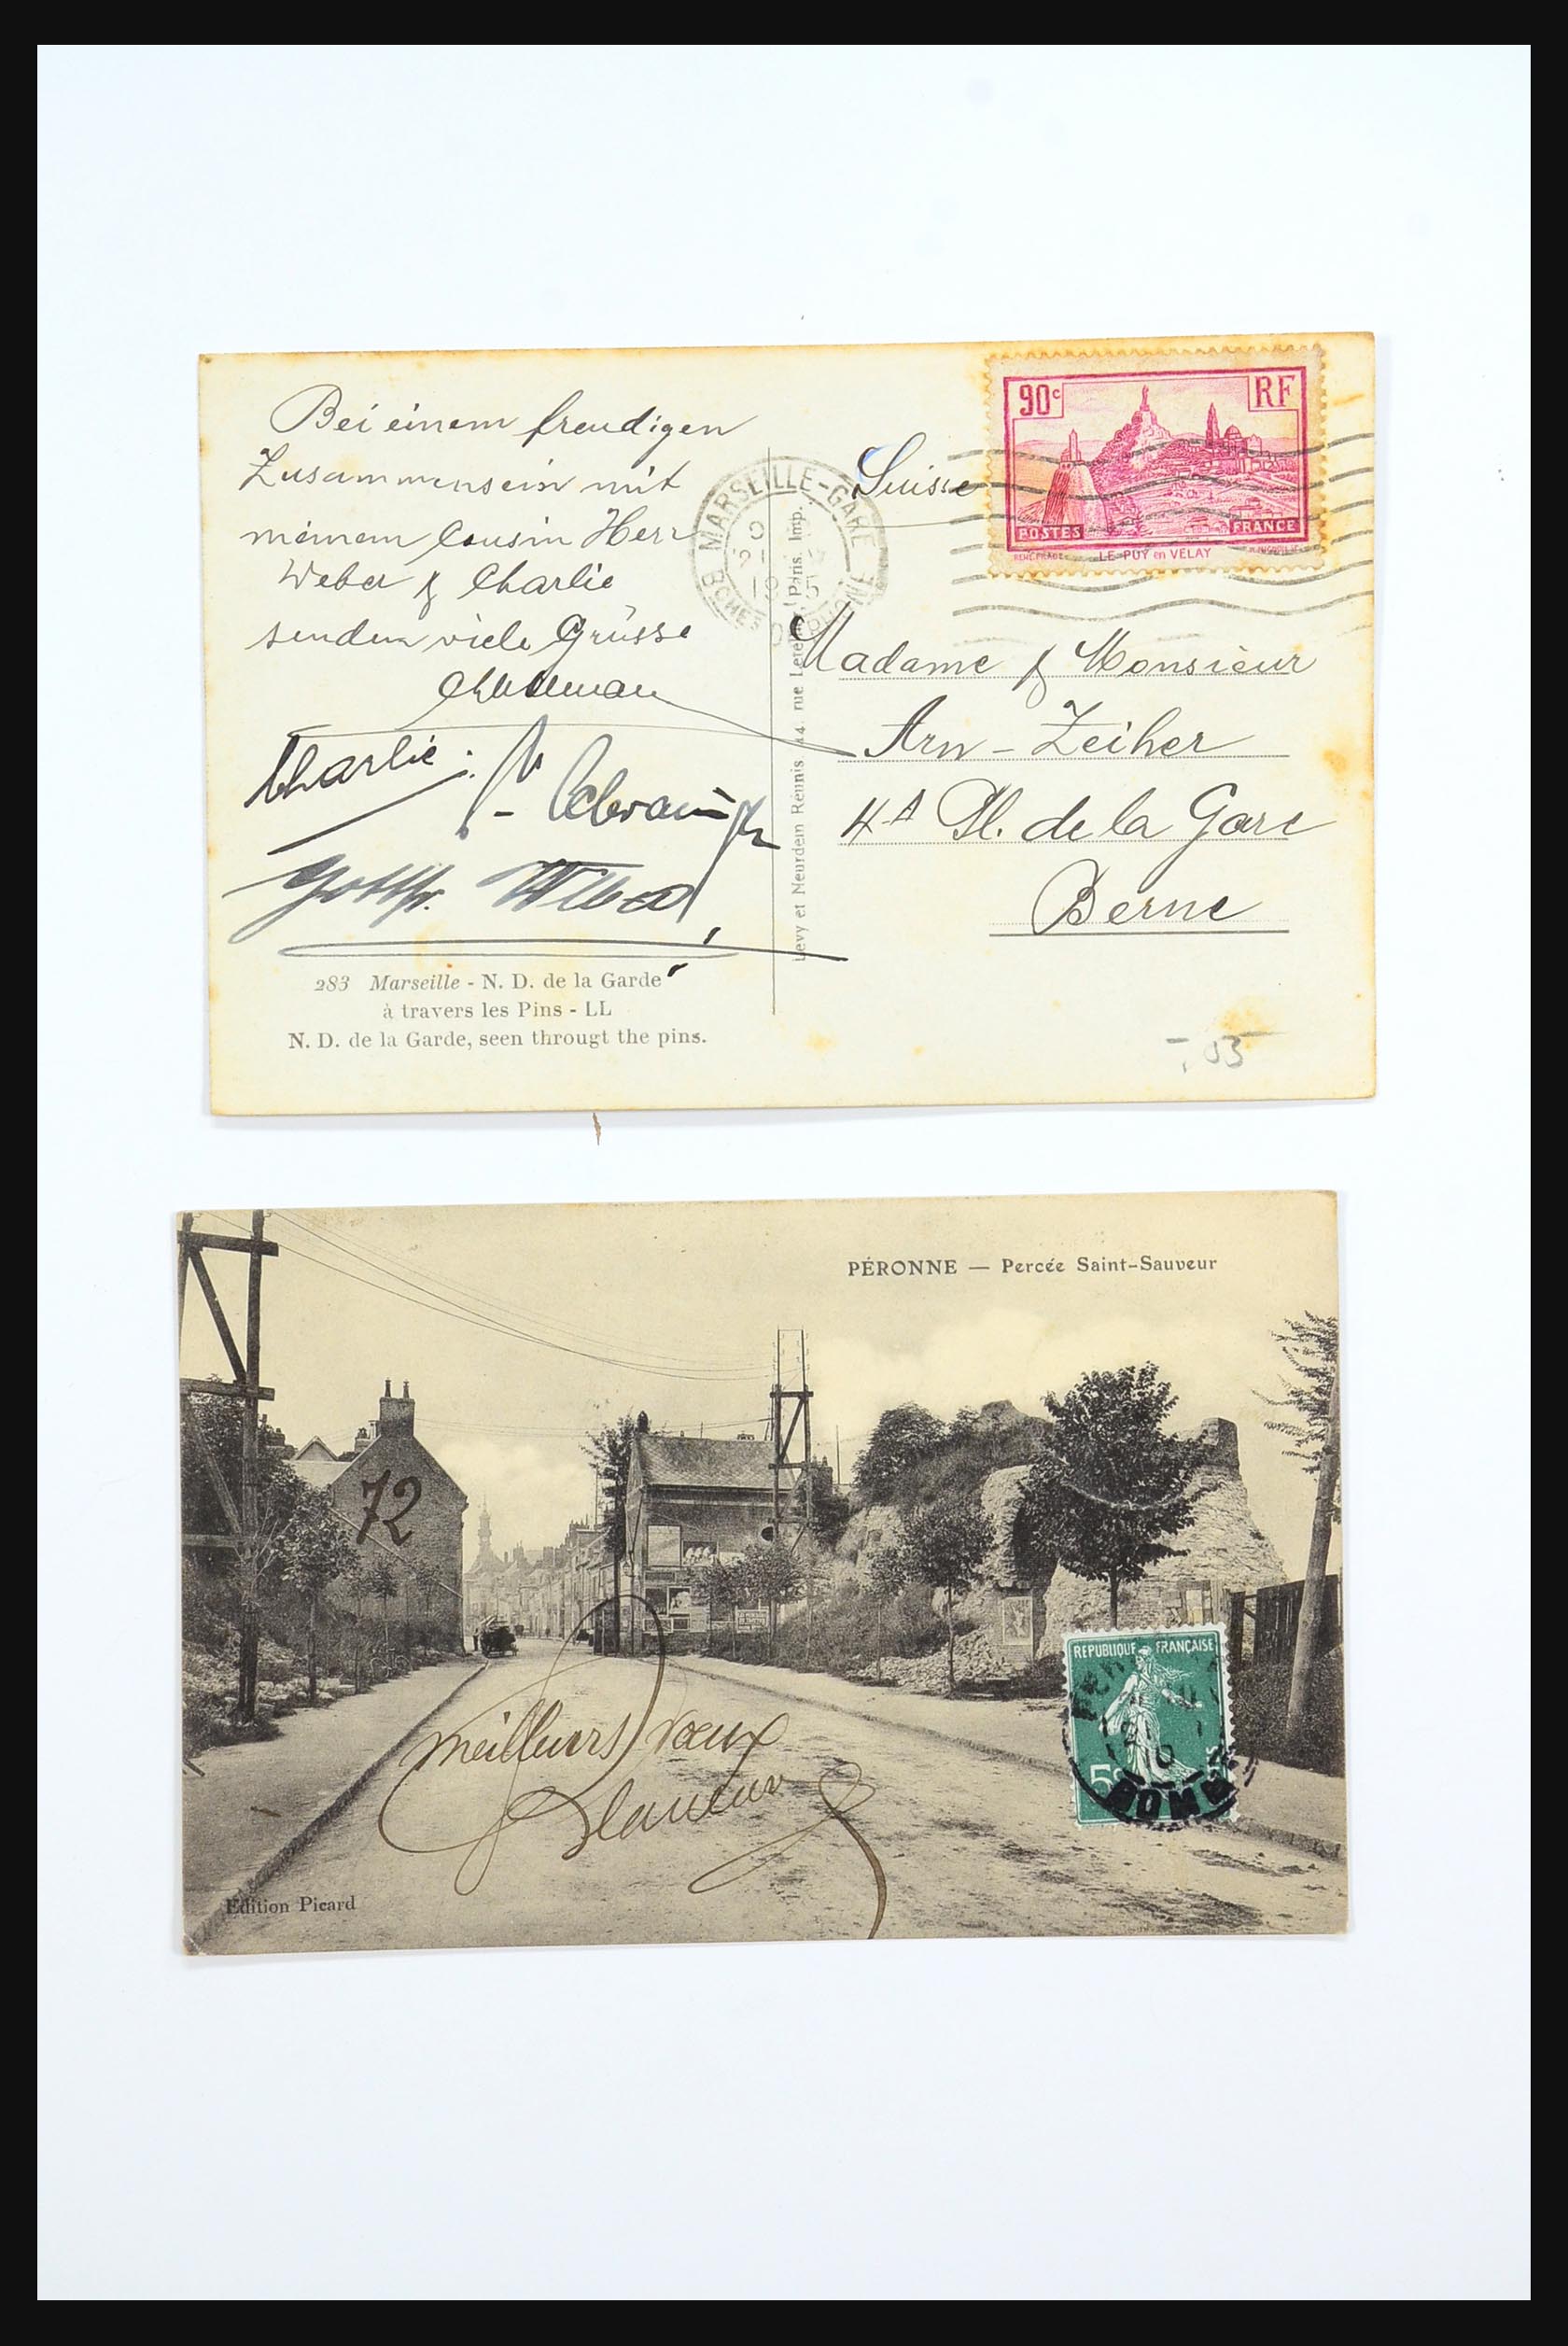 Bei einem freudigen
Zusammensein mit
meinem Cousin Herr
Weber & Charlie
senden viele Grüsse
Charlie
283 Marseille - N. D. de la Garde
à travers les Pins - LL
N. D. de la Garde, seen througt the pins.
Levy et Neurdein Réunis, 44, rue Letellier, Paris. Imp.
MARSEILLE-GARE
BCHES DU RHONE
Suisse
90c RF
POSTES FRANCE
LE PUY en VELAY
Madame & Monsieur
Arn - Zeiher
4A Pl. de la Gare
Berne
-,05
PÉRONNE — Percée Saint-Sauveur
72
meilleurs voeux
REPUBLIQUE FRANÇAISE
5c
Edition Picard